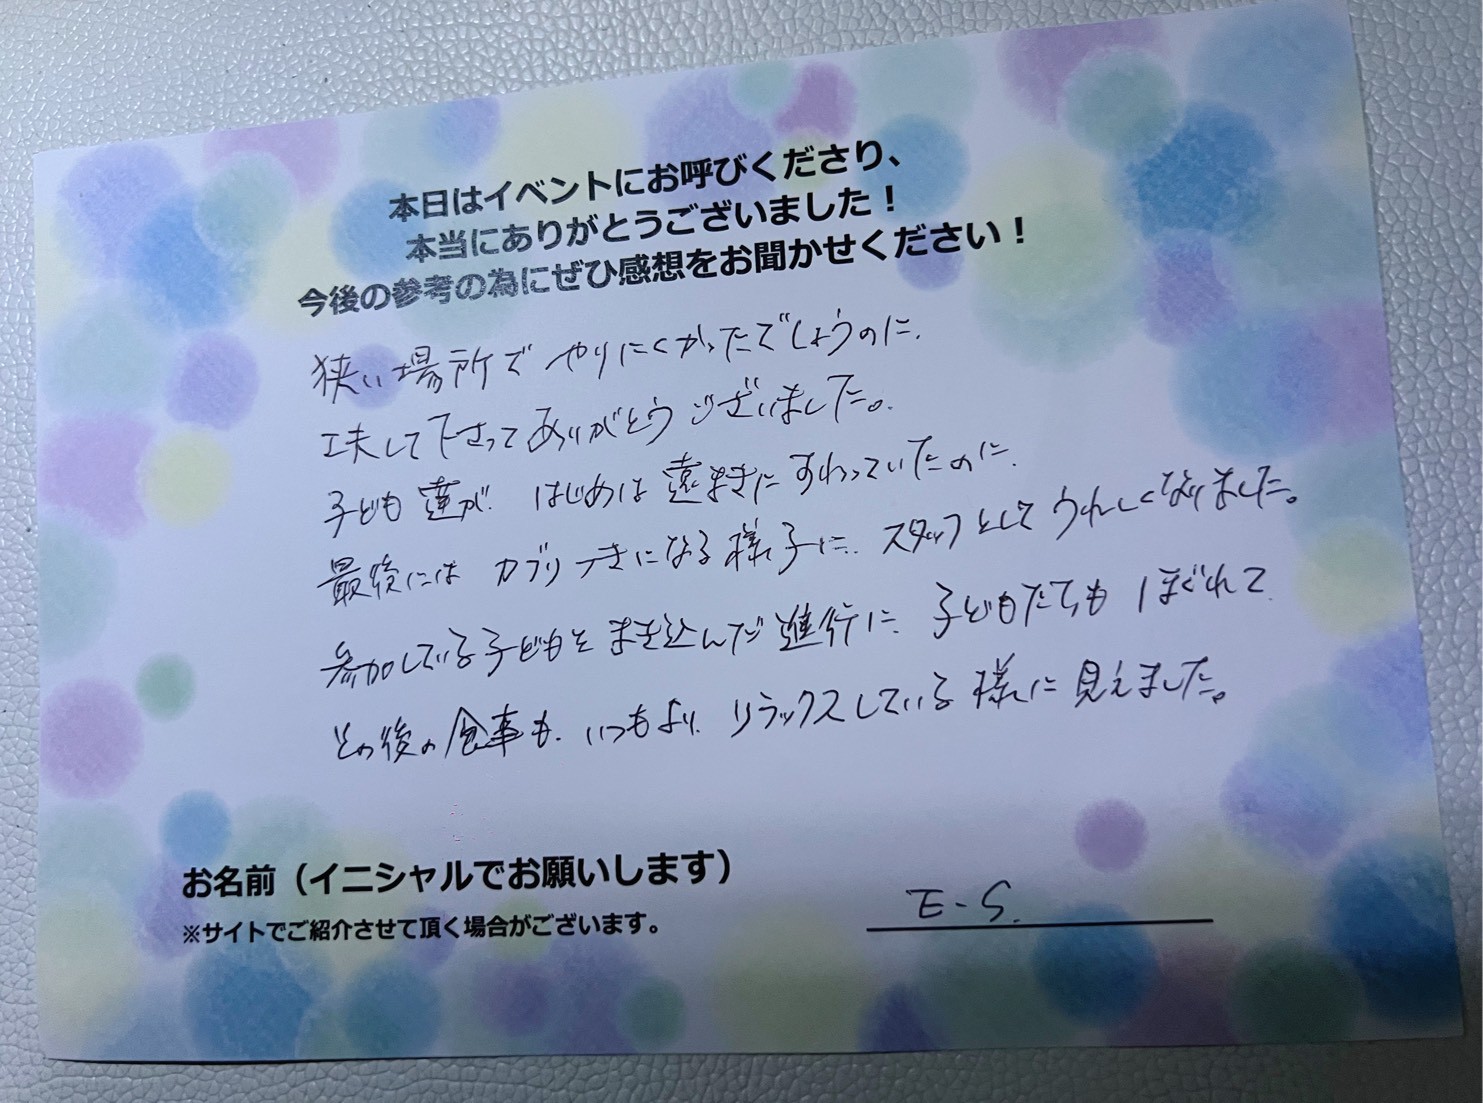 本日はイベントにお呼びくださり、
本当にありがとうございました！
今後の参考の為にぜひ感想をお聞かせください！
狭い場所で やりにくかったでしょうのに、
工夫して下さってありがとう ございました。
子ども達が、はじめは遠まきにすわっていたのに、
最後には カブリつきになる様子に、スタッフとしてうれしくなりました。
参加している子どもをまき込んだ進行に、子どもたちも ほぐれて
その後の食事も、いつもより、リラックスしている様に見えました。
お名前（イニシャルでお願いします）
E-S.
※サイトでご紹介させて頂く場合がございます。